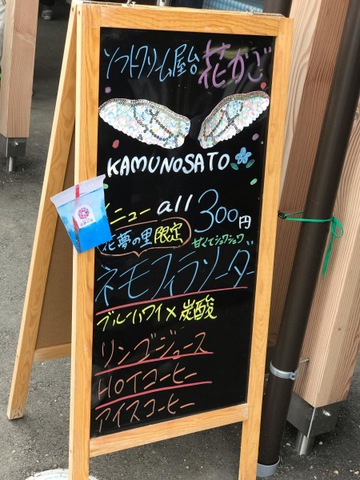 ソフトクリーム屋台 花かご
KAMUNOSATO
メニュー all 300円
花夢の里限定 甘くてシュワシュワ
ネモフィラソーダ
ブルーハワイ×炭酸
リンゴジュース
HOTコーヒー
アイスコーヒー